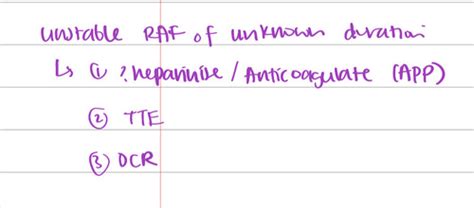 unstable RAF of unknown duration
↳ ① ? heparinise / Anticoagulate (APP)
② TTE
③ DCR